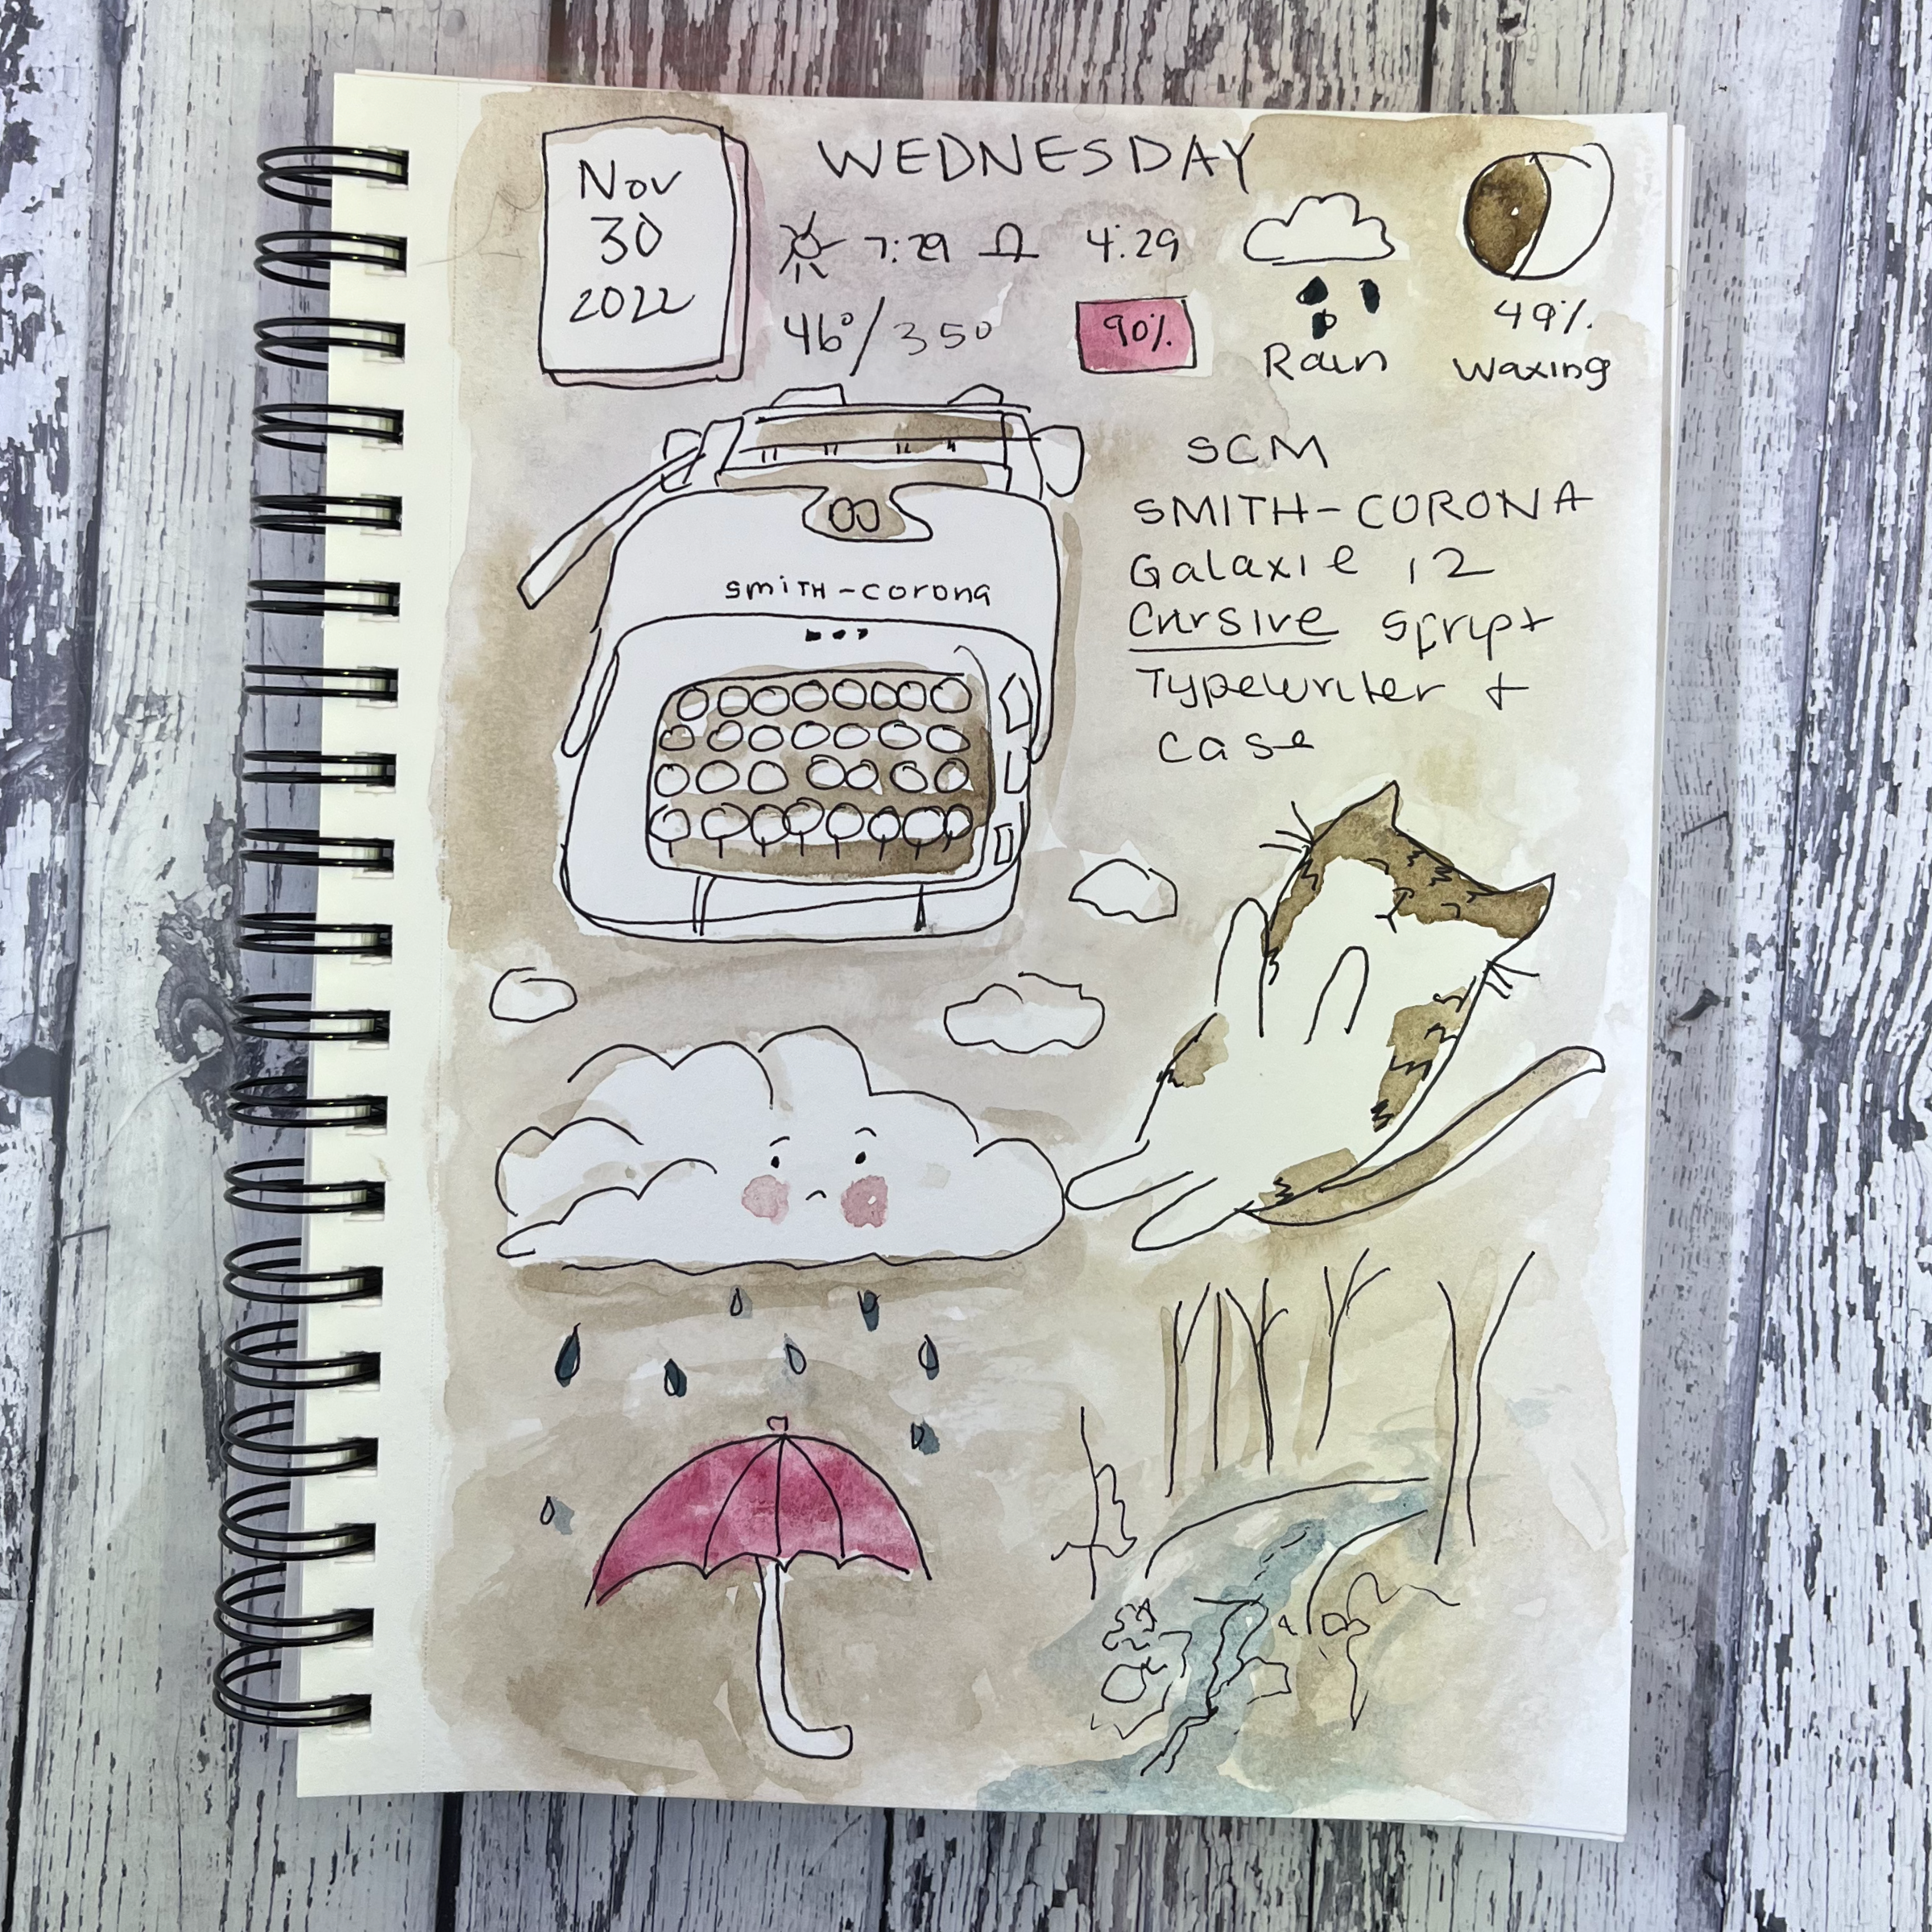 Nov
30
2022
WEDNESDAY
7:29 4:29
46°/35°
90%
Rain
49%
Waxing
SCM
SMITH-CORONA
Galaxie 12
Cursive Script
Typewriter +
case
smith-corona